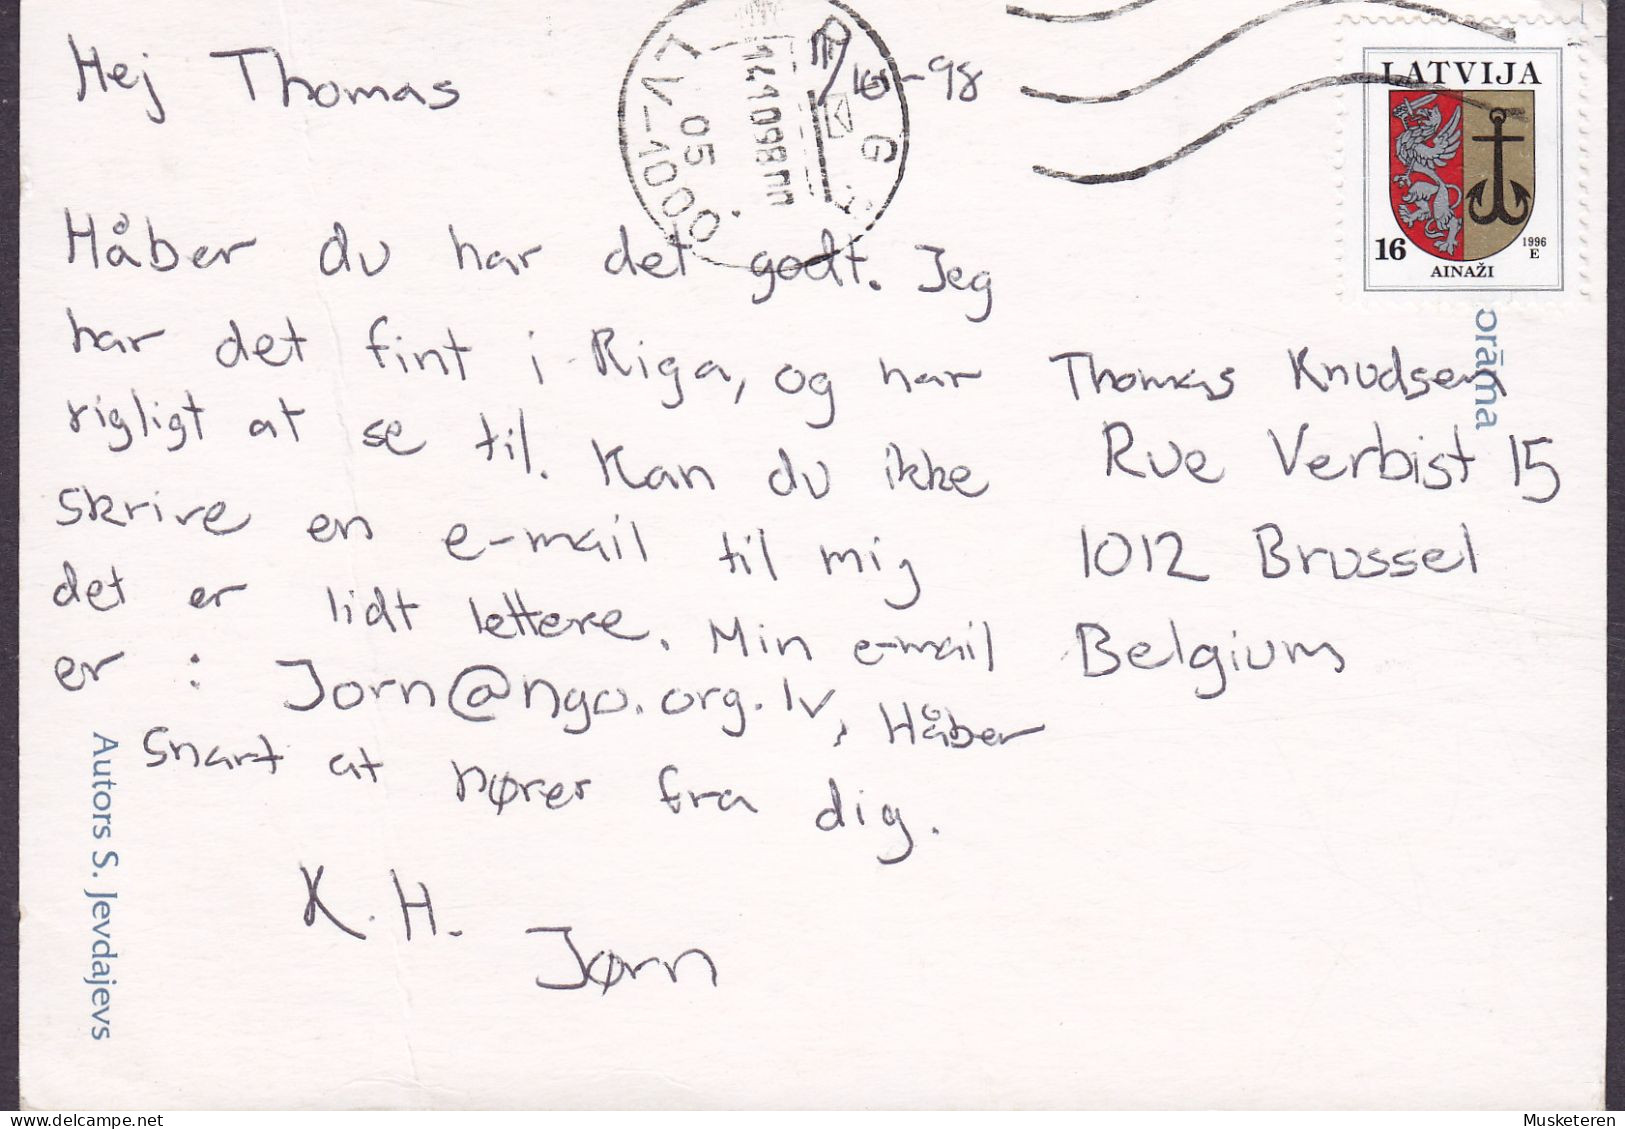 Hej Thomas
/10-98
Håber du har det godt. Jeg
har det fint i Riga, og har
rigligt at se til. Kan du ikke
skrive en e-mail til mig
det er lidt lettere. Min e-mail
er : Jorn@ngo.org.lv, Håber
snart at hører fra dig.
K.H.
Jørn
Thomas Knudsen
Rue Verbist 15
1012 Brussel
Belgium
LATVIJA
16
1996
E
AINAŽI
LV-1000
05
141098
orāma
Autors S. Jevdajevs
Musketeren